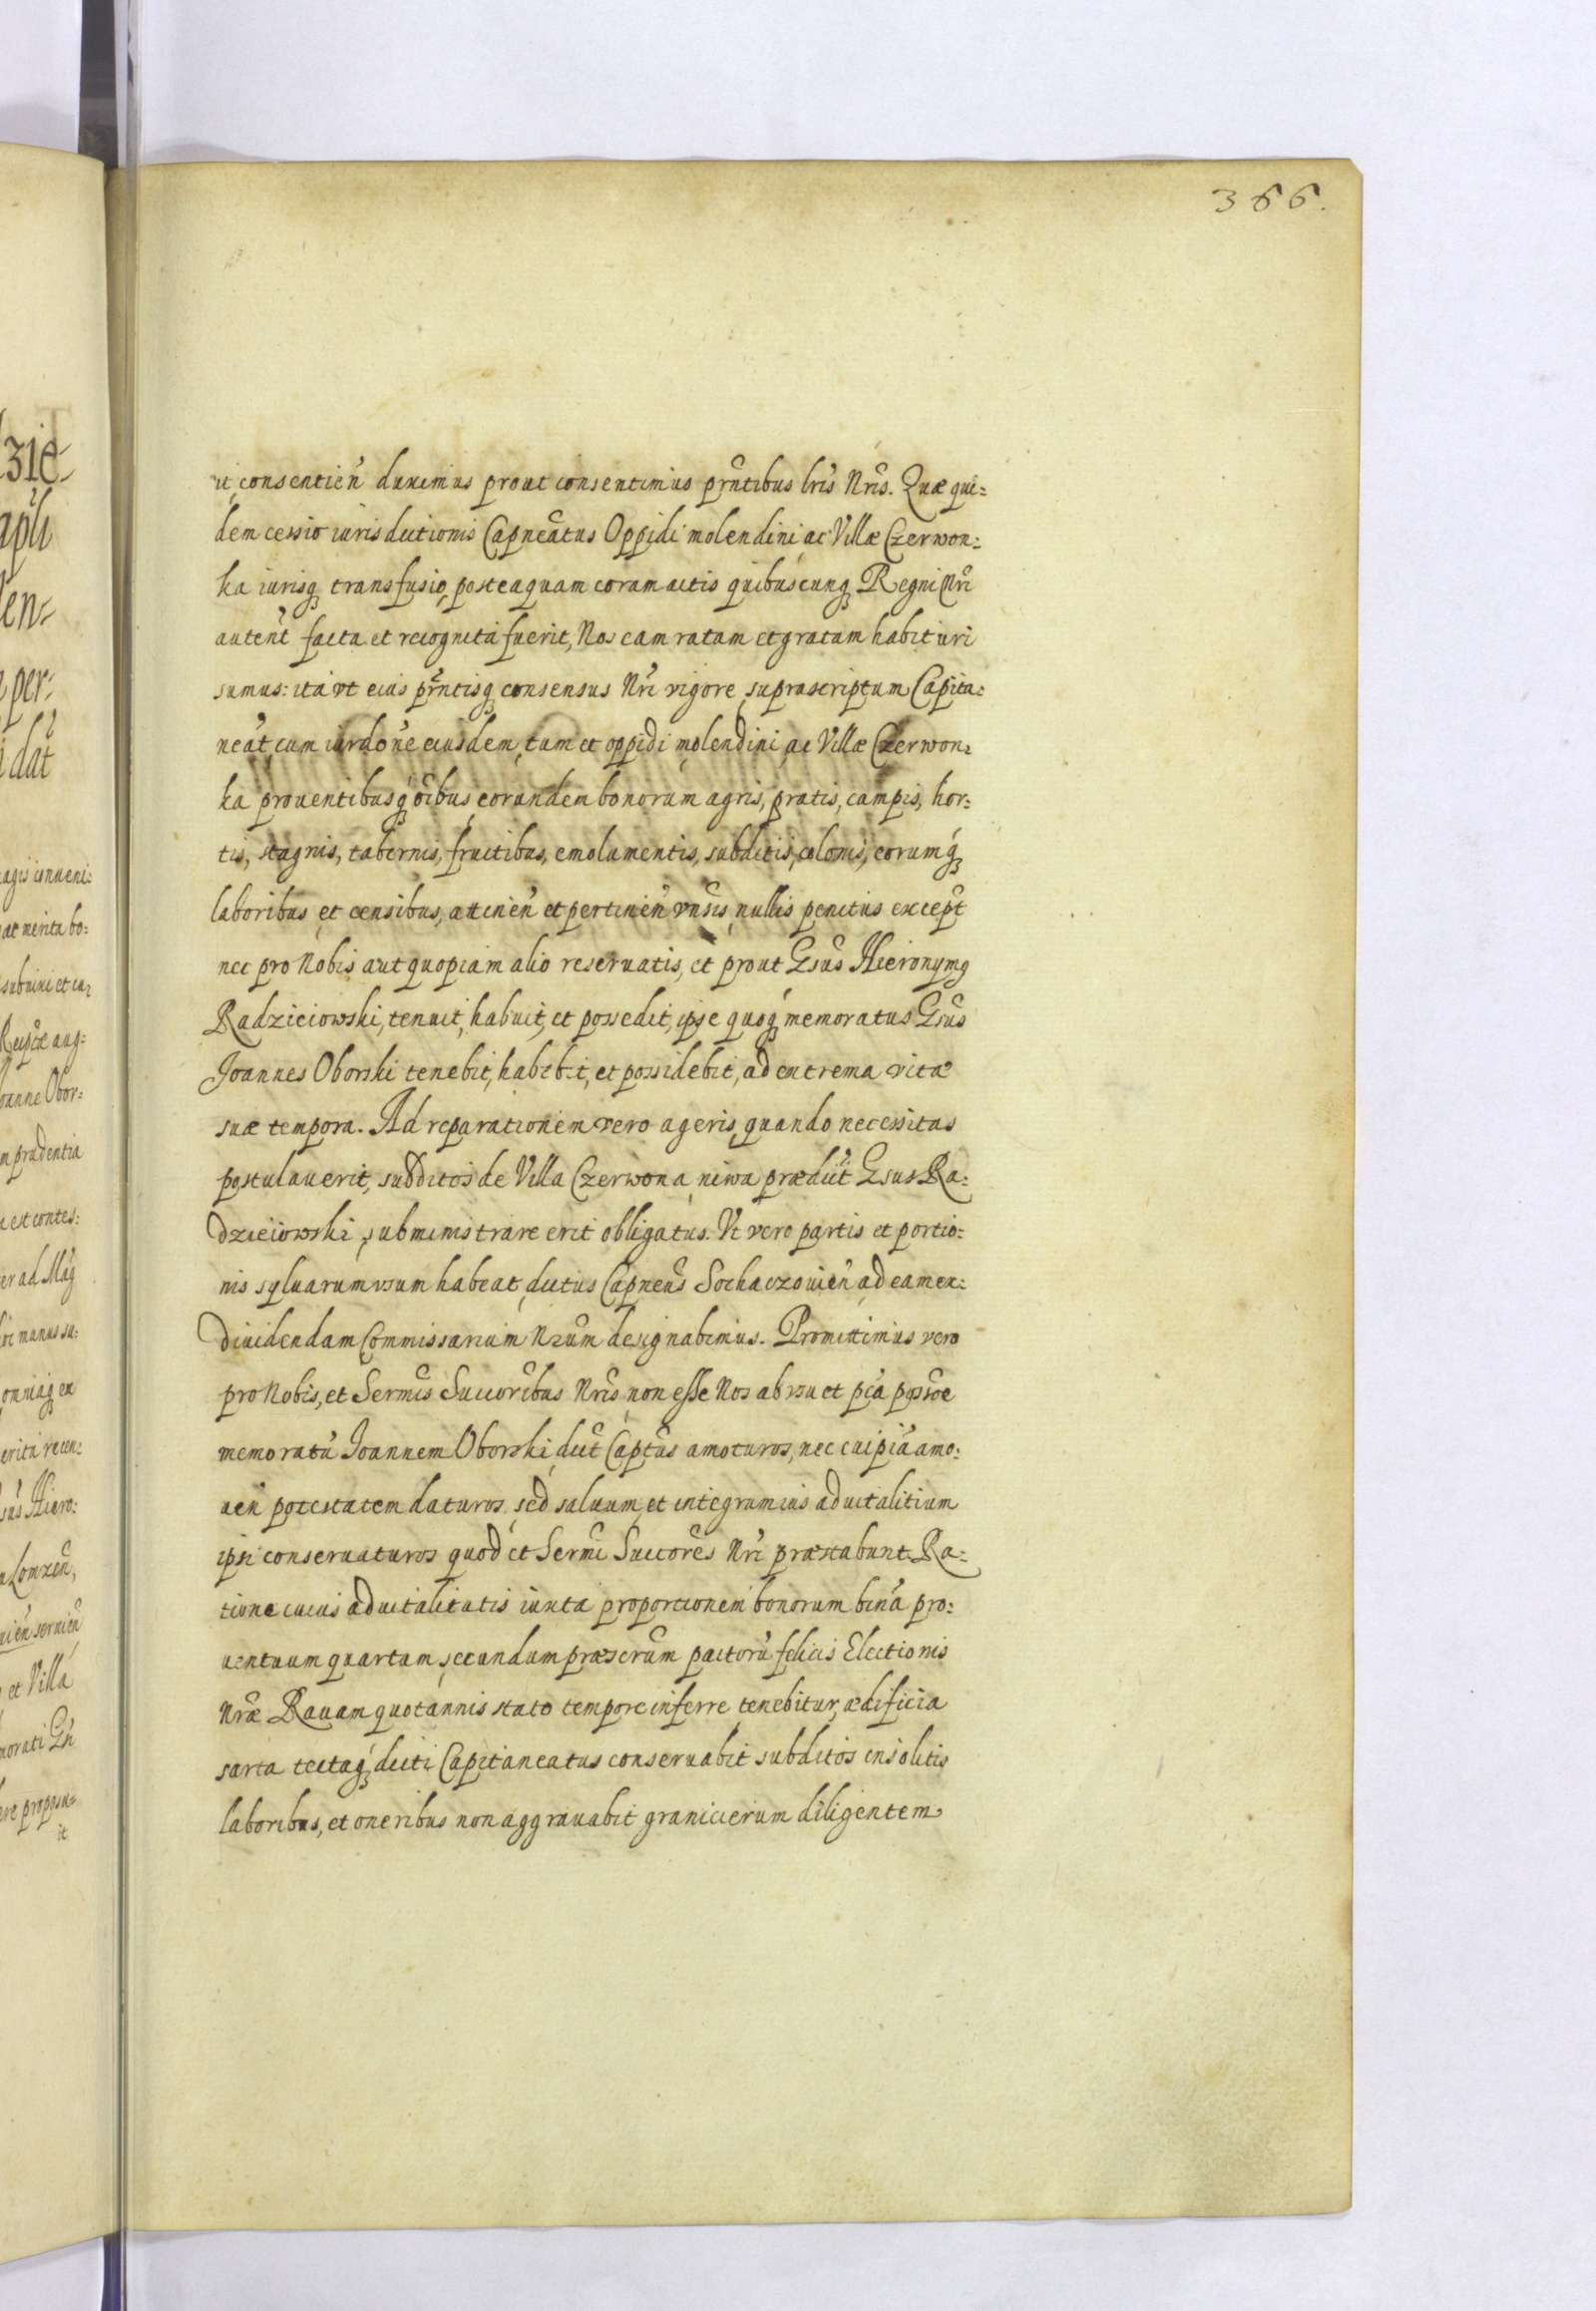 366.
it consentień duximus prout consentimus pr̃ntibus lris Nris. Quæ qui=
dem cessio iurisdictionis Capneatus Oppidi molendini ac Villæ Czerwon=
ka iurisq; transfusio, posteaquam coram actis quibuscunq; Regni Nri
autent facta et recognita fuerit, Nos eam ratam et gratam habituri
sumus: ita vt eius pr̃ntisq; consensus Nri vigore suprascriptum Capita=
neat, cum iurdone eiusdem, tum et oppidi molendini ac Villæ Czerwon=
ka prouentibusq; oibus eorundem bonorum agris, pratis, campis, hor=
tis, stagnis, tabernis, fructibus, emolumentis, subditis, colonis, eorumq;
laboribus et censibus, attineń et pertineń vnsis nullis penitus except
nec pro Nobis aut quopiam alio reseruatis, et prout Gsus Hieronymq
Radzieiowski, tenuit, habuit, et possedit, ipse quoq; memoratus Gsus
Joannes Oborski tenebit, habebit, et possidebit, ad extrema vitæ
suæ tempora. Ad reparationem vero ageris, quando necessitas
postulauerit, subditos de Villa Czerwona niwa prædict Gsus Ra=
dzieiowski, subministrare erit obligatus. Vt vero partis et portio=
nis syluarum vsum habeat, dictus Capneus Sochaczouień ad eam ex=
diuidendam Commissarium Nrum designabimus. Promittimus vero
pro Nobis, et Sermis Succoribus Nris non esse Nos ab vsu et pca possoe
memoratu Joannem Oborski dict Captus amoturos, nec cuipia amo=
ueń potestatem daturos. sed saluum et integrum ius aduitalitium
ipsi conseruaturos quod et Sermi Succores Nri præstabunt. Ra=
tione cuius aduitalitatis iuxta proportionem bonorum bina pro=
uentuum quartam secundum præscrum pactoru felicis Electionis
Nræ Rauam quotannis stato tempore inferre tenebitur, ædificia
sarta tectaq; dicti Capitaneatus conseruabit subditos insolitis
laboribus, et oneribus non aggrauabit granicierum diligentem